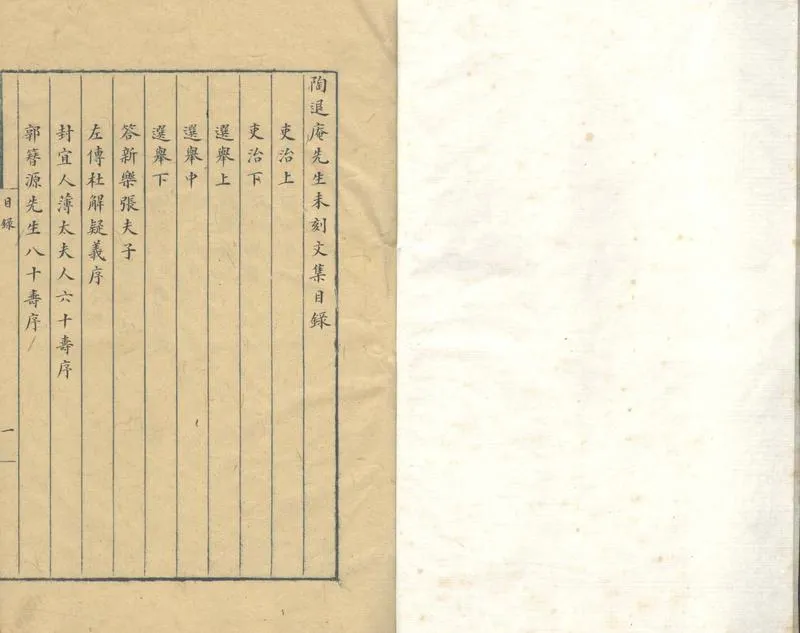 陶退庵先生未刻文集目錄
吏治上
吏治下
選舉上
選舉中
選舉下
答新樂張夫子
左傳杜解疑義序
封宜人薄太夫人六十壽序
郭簪源先生八十壽序
目錄
一